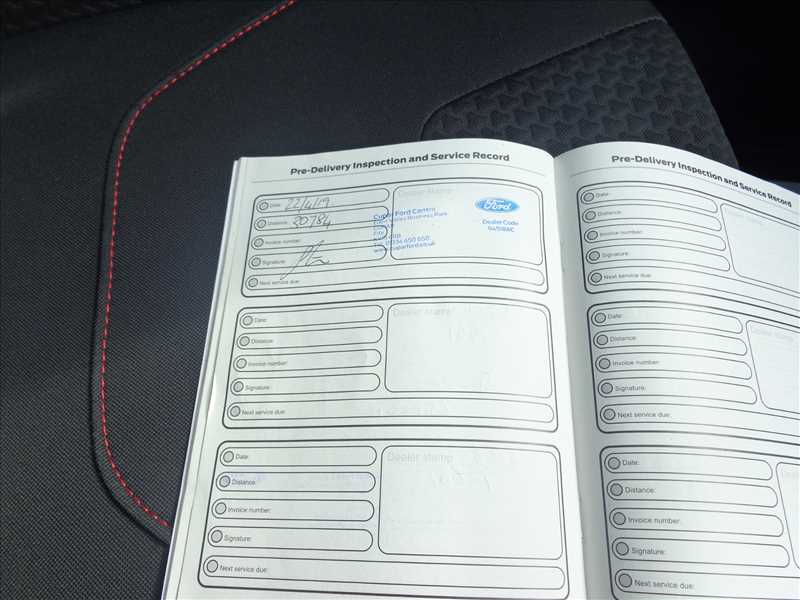 Pre-Delivery Inspection and Service Record
Date: 22/4/19
Distance: 20784
Invoice number:
Signature:
Next service due:
Dealer stamp
Cupar Ford Centre
Eden Valley Business Park
Cupar
Fife
Tel. 01334 650 650
www.cuparford.co.uk
Ford
Dealer Code
Date:
Distance:
Invoice number:
Signature:
Next service due:
Dealer stamp
Date:
Distance:
Invoice number:
Signature:
Next service due:
Dealer stamp
Pre-Delivery Inspection and Service Record
Date:
Distance:
Invoice number:
Signature:
Next service due:
Dealer stamp
Date:
Distance:
Invoice number:
Signature:
Next service due:
Dealer stamp
Date:
Distance:
Invoice number:
Signature:
Next service due: